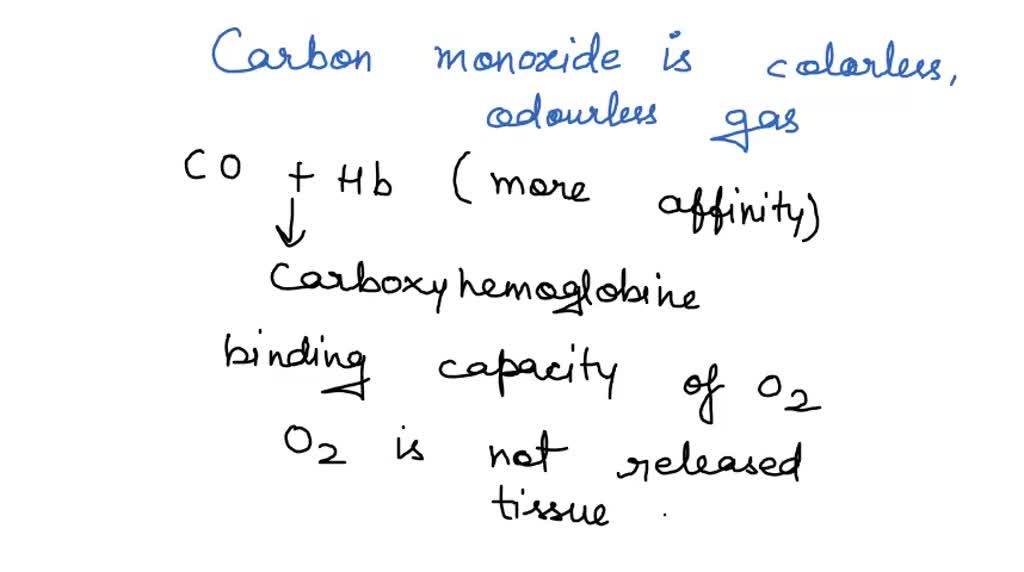 Carbon monoxide is colorless,
odourless gas
CO + Hb (more affinity)
↓
Carboxyhemoglobine
binding capacity of O2
O2 is not released
tissue .